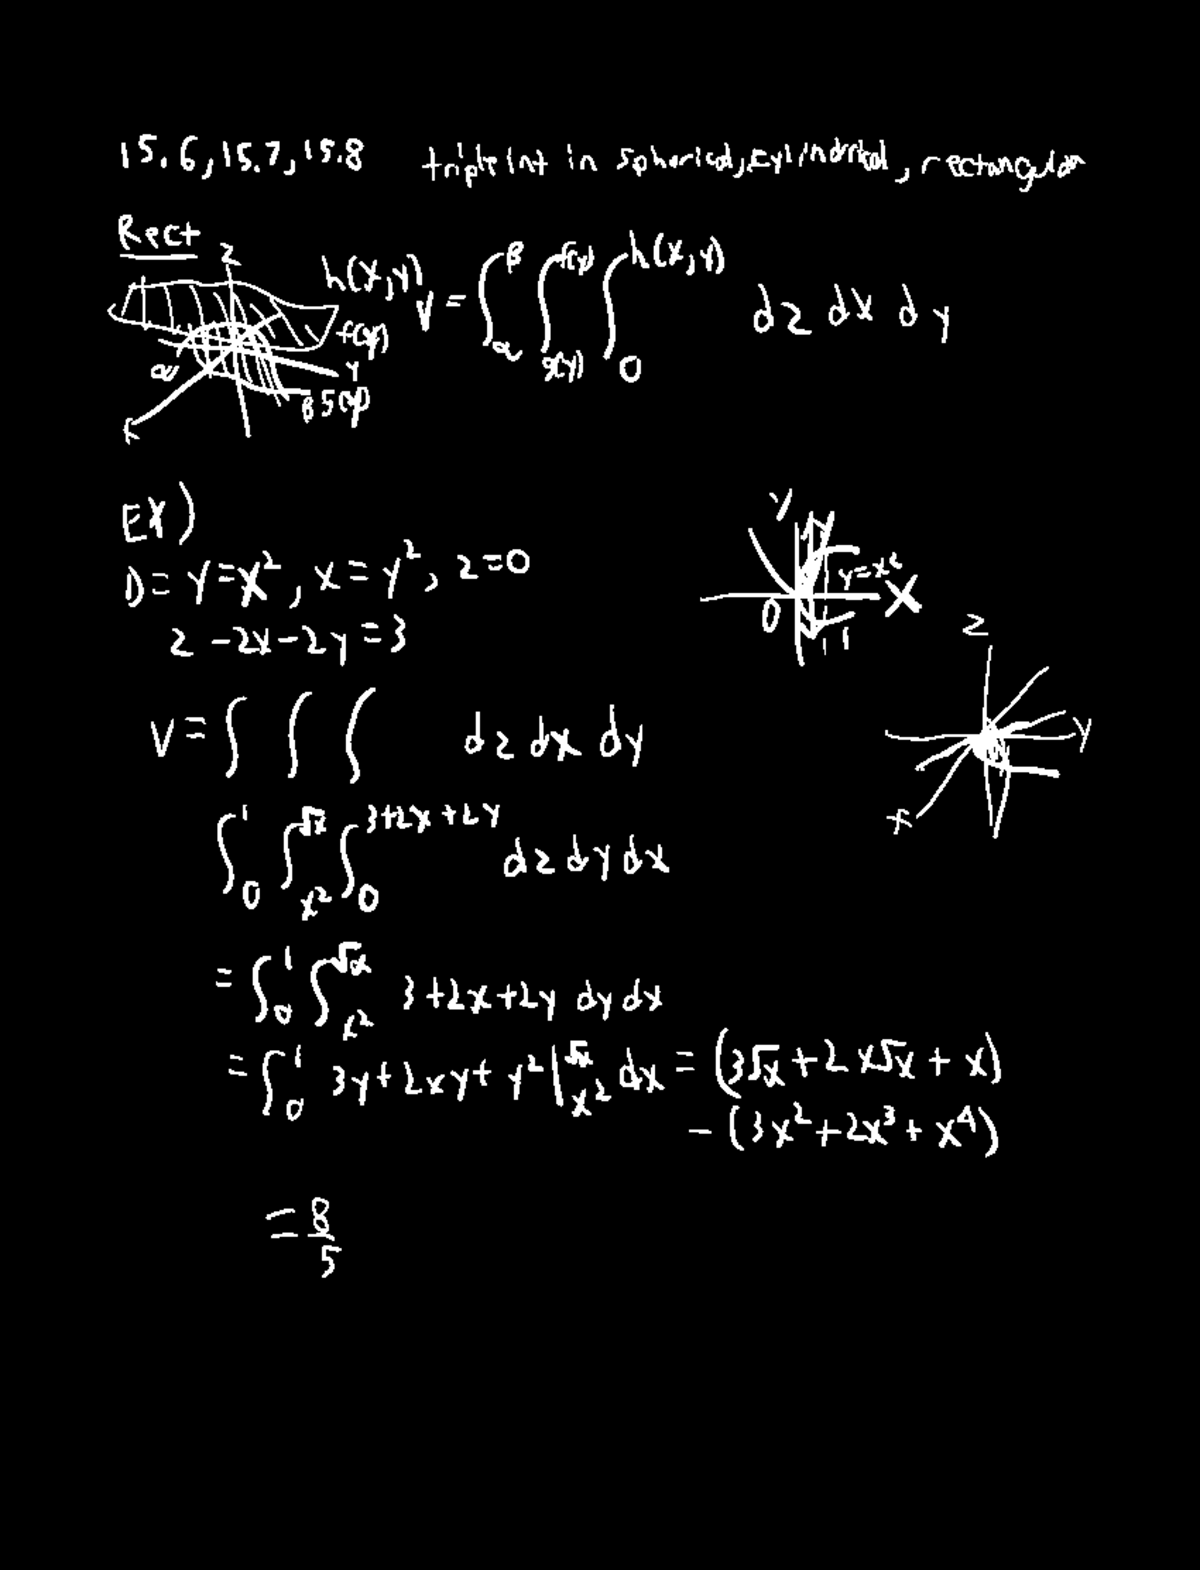 15.6, 15.7, 15.8 triple int in spherical, cylindrical, rectangular
Rect
z
h(x,y)
f(y)
α
y
β g(y)
x
V = ∫_α^β ∫_{g(y)}^{f(y)} ∫_0^{h(x,y)} dz dx dy
EX)
D = y=x², x=y², z=0
z -2x-2y=3
y
y=x²
x
0
1
z
y
x
V = ∫ ∫ ∫ dz dx dy
∫_0^1 ∫_{x²}^{√x} ∫_0^{3+2x+2y} dz dy dx
= ∫_0^1 ∫_{x²}^{√x} 3+2x+2y dy dx
= ∫_0^1 3y+2xy+y² |_{x²}^{√x} dx = (3√x+2x√x+x)
- (3x²+2x³+x⁴)
= 8/5